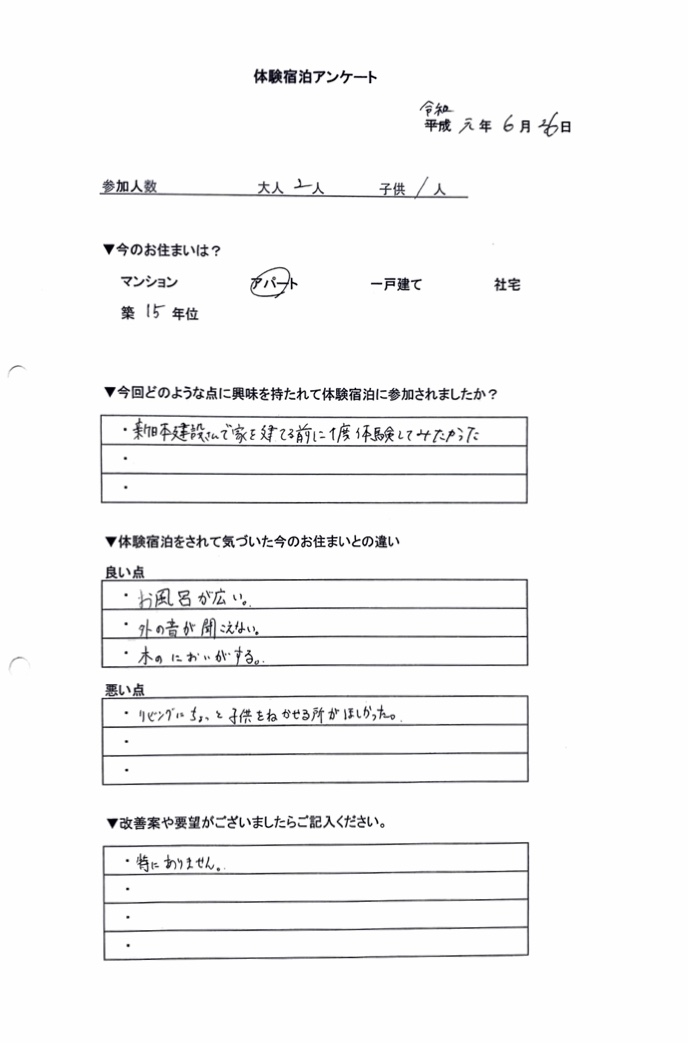 体験宿泊アンケート
令和
平成 元年 6月 26日
参加人数 大人 2人 子供 1人
▼今のお住まいは？
マンション アパート 一戸建て 社宅
築 15 年位
▼今回どのような点に興味を持たれて体験宿泊に参加されましたか？
・新日本建設さんで家を建てる前に1度体験してみたかった
・
・
▼体験宿泊をされて気づいた今のお住まいとの違い
良い点
・お風呂が広い。
・外の音が聞こえない。
・木のにおいがする。
悪い点
・リビングにちょっと子供をねかせる所がほしかった。
・
・
▼改善案や要望がございましたらご記入ください。
・特にありません。
・
・
・